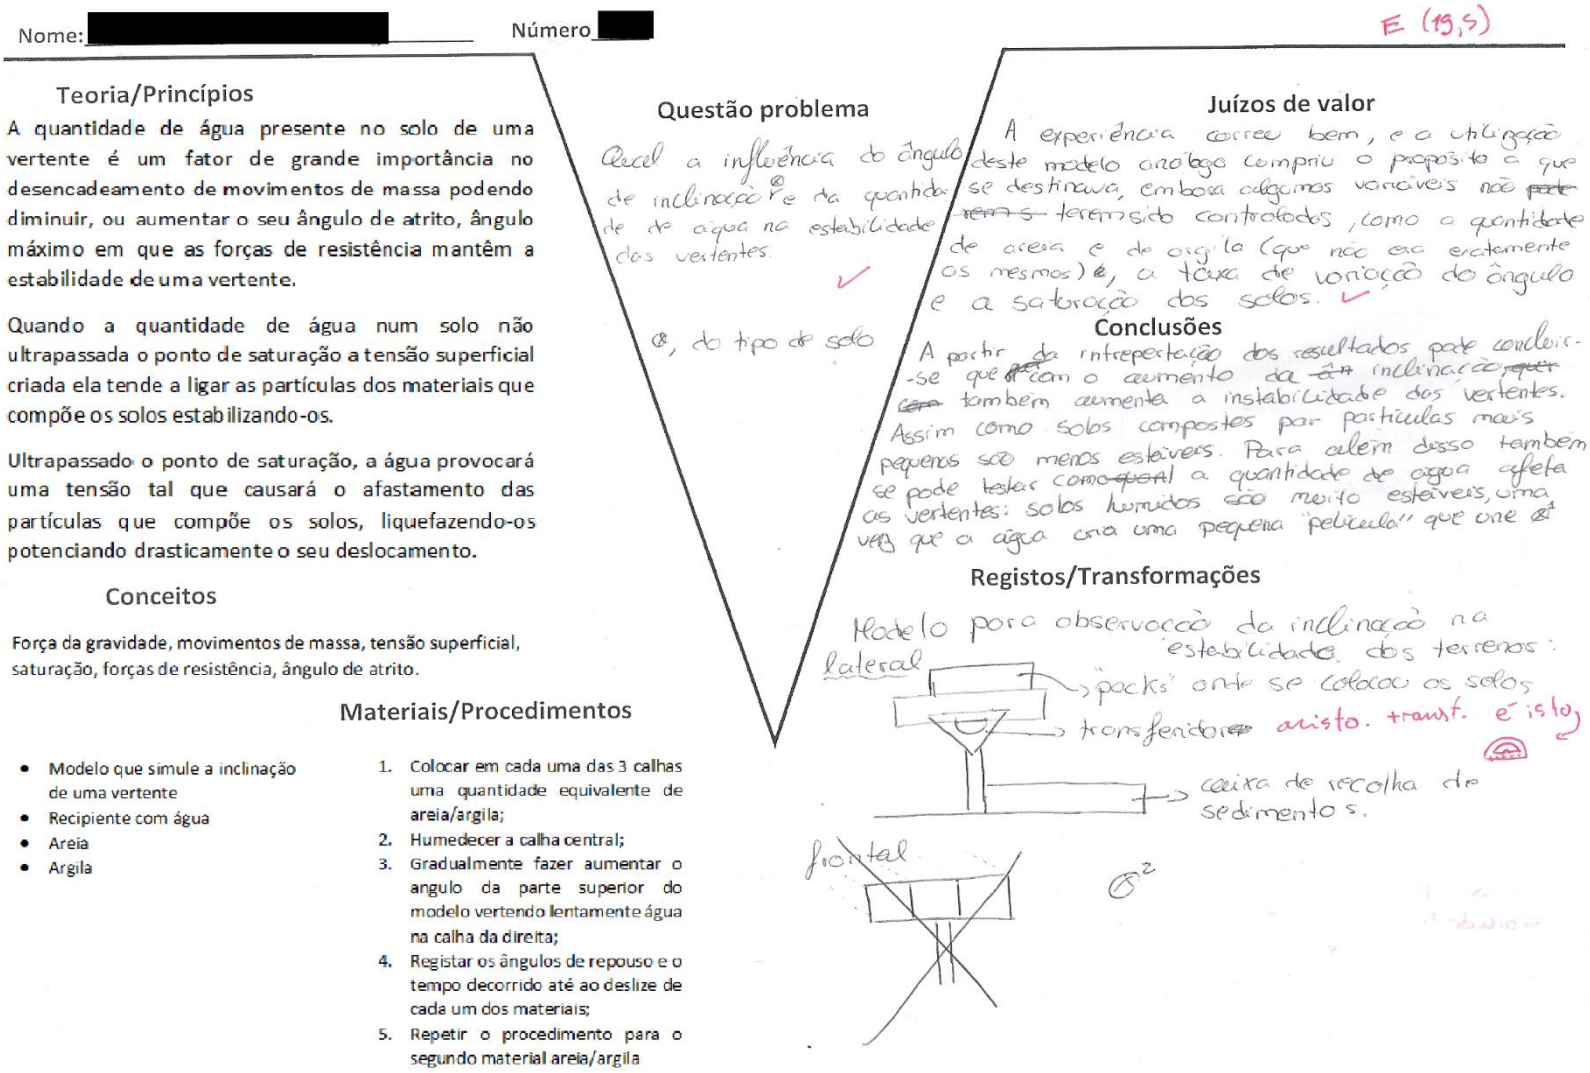 Nome:
Número
E (19,5)
Teoria/Princípios
A quantidade de água presente no solo de uma
vertente é um fator de grande importância no
desencadeamento de movimentos de massa podendo
diminuir, ou aumentar o seu ângulo de atrito, ângulo
máximo em que as forças de resistência mantêm a
estabilidade de uma vertente.
Quando a quantidade de água num solo não
ultrapassada o ponto de saturação a tensão superficial
criada ela tende a ligar as partículas dos materiais que
compõe os solos estabilizando-os.
Ultrapassado o ponto de saturação, a água provocará
uma tensão tal que causará o afastamento das
partículas que compõe os solos, liquefazendo-os
potenciando drasticamente o seu deslocamento.
Conceitos
Força da gravidade, movimentos de massa, tensão superficial,
saturação, forças de resistência, ângulo de atrito.
Materiais/Procedimentos
• Modelo que simule a inclinação
de uma vertente
• Recipiente com água
• Areia
• Argila
1. Colocar em cada uma das 3 calhas
uma quantidade equivalente de
areia/argila;
2. Humedecer a calha central;
3. Gradualmente fazer aumentar o
angulo da parte superior do
modelo vertendo lentamente água
na calha da direita;
4. Registar os ângulos de repouso e o
tempo decorrido até ao deslize de
cada um dos materiais;
5. Repetir o procedimento para o
segundo material areia/argila
Questão problema
Qual a influência do ângulo
de inclinação ⊗ e da quantida
de de água na estabilidade
das vertentes.
⊗, do tipo de solo
Juízos de valor
A experiência correu bem, e a utilização
deste modelo análogo cumpriu o propósito a que
se destinava, embora algumas variáveis não
terem sido controladas, como a quantidade
de areia e de argila (que não era exatamente
os mesmos), a taxa de variação do ângulo
e a saturação dos solos.
Conclusões
A partir da intrepertação dos resultados pode concluir-
-se que com o aumento da inclinação
também aumenta a instabilidade das vertentes.
Assim como solos compostos por partículas mais
pequenas são menos estáveis. Para além disso também
se pode testar como a quantidade de água afeta
as vertentes: solos humidos são muito estáveis, uma
vez que a água cria uma pequena "película" que une ⊗1
Registos/Transformações
Modelo para observação da inclinação na
estabilidade dos terrenos:
lateral
"packs" onde se colocou os solos
transferidor
aristo. transf. é isto,
caixa de recolha de
sedimentos.
frontal
⊗2